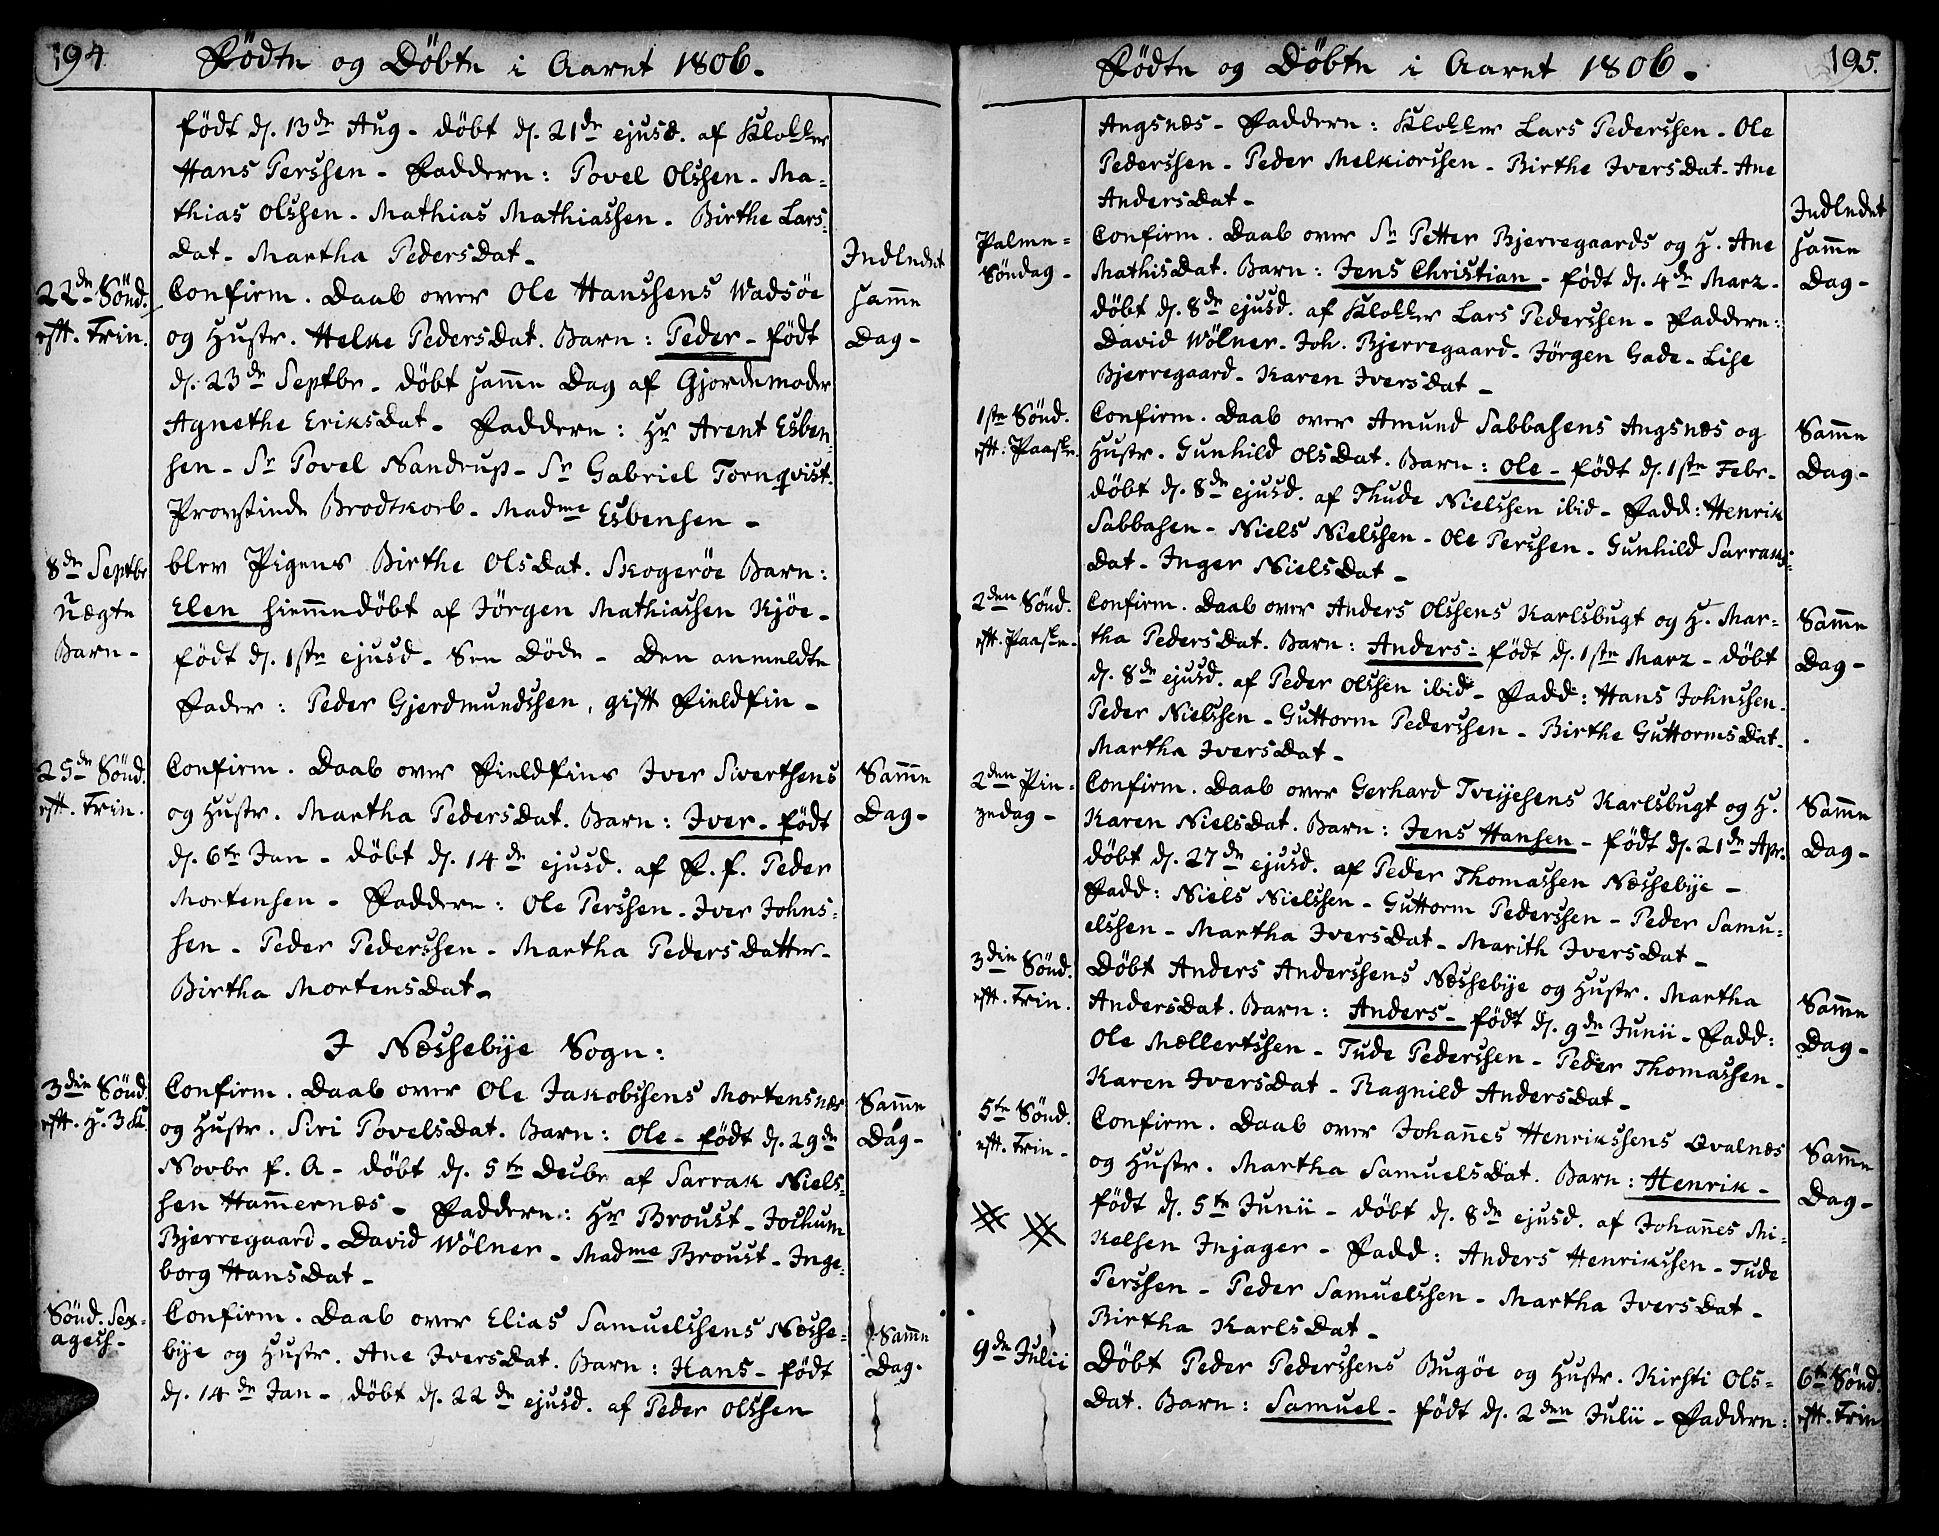 194
Födte og Döbte i Aaret 1806.
födt d. 13de Aug - döbt d. 21de ejusd. af Klokker
Hans Perssen - Faddere: Povel Olssen - Ma-
thias Olssen - Mathias Mathiassen - Birthe Lars-
Dat - Martha PedersDat -
22de Sönd.
eftt. Trin.
Confirm. Daab over Ole Hanssens Wadsöe
og Hustr. Helke PedersDat. Barn: Peder - födt
d. 23de Septbr - döbt samme Dag af Gjordemoder
Agnethe EriksDat - Faddere: Hr Arent Esben-
sen - Sr Povel Nandrup - Sr Gabriel Tornqvist.
Provstinde Brodtkorb - Madme Esbensen -
Indledet
samme
Dag -
8de Septbr
Uægte
Barn -
blev Pigens Birthe OlsDat. Skogeröe Barn:
Elen hiemmedöbt af Jörgen Mathiassen Kjöe -
födt d. 1ste ejusd - Sen Döde - Den anmeldte
Fader: Peder Gjerdmundssen, gift Fieldfin -
25de Sönd.
eftt. Trin.
Confirm. Daab over Fieldfins Iver Sivertsens
og Hustr. Martha PedersDat. Barn: Iver - födt
d. 6te Jan - döbt d. 14de ejusd. af F. f. Peder
Mortensen - Faddere: Ole Perssen - Iver Johns-
sen - Peder Pederssen - Martha PedersDatter -
Birtha MortensDat -
Samme
Dag -
I Næssebye Sogn:
3die Sönd.
eftt. H. 3 K.
Confirm. Daab over Ole Jakobssens Mortensnæs
og Hustr. Siri PovelsDat. Barn: Ole - födt d. 29de
Novbr f. A - döbt d. 5te Decbr af Sarrak Niels-
sen Hammernæs - Faddere: Hr Broust - Jochum
Bjerregaard - David Wölner - Madme Broust - Inge-
borg HansDat -
Samme
Dag -
Sönd. Sex-
agess -
Confirm. Daab over Elias Samuelssens Næsse-
bye og Hustr. Ane IversDat. Barn: Hans - födt
d. 14de Jan - döbt d. 22de ejusd. af Peder Olssen
Samme
Dag -
195.
Födte og Döbte i Aaret 1806.
Angsnæs - Faddere: Klokker Lars Pederssen - Ole
Pederssen - Peder Melkiorssen - Birthe IversDat - Ane
AndersDat -
Palme-
Söndag -
Confirm. Daab over Sr Petter Bjerregaards og H. Ane
MathisDat. Barn: Jens Christian - födt d. 4de Marz -
döbt d. 8de ejusd. af Klokker Lars Pederssen - Faddere:
David Wölner - Joh. Bjerregaard - Jörgen Gade - Lise
Bjerregaard - Karen IversDat -
Indledet
samme
Dag -
1ste Sönd.
eftt. Paaske.
Confirm. Daab over Amund Sabbasens Angsnæs og
Hustr. Gunhild OlsDat. Barn: Ole - födt d. 1ste Febr -
döbt d. 8de ejusd. af Thude Nielssen ibid - Fadd: Henrik
Sabbasen - Niels Nielssen - Ole Perssen - Gunhild Sarraks-
Dat - Inger NielsDat -
Samme
Dag -
2den Sönd.
eftt. Paaske -
Confirm. Daab over Anders Olssens Karlsbugt og H. Mar-
tha PedersDat. Barn: Anders: födt d. 1ste Marz - döbt
d. 8de ejusd. af Peder Olssen ibid - Fadd: Hans Johnssen -
Peder Nielssen - Guttorm Pederssen - Birthe GuttormsDat -
Martha IversDat -
Samme
Dag -
2den Pin-
zedag -
Confirm. Daab over Gerhard Tveyesens Karlsbugt og H.
Karen NielsDat. Barn: Jens Hansen - födt d. 21de Apr.
döbt d. 27de ejusd. af Peder Thomassen Næssebye -
Fadd: Niels Nielssen - Guttorm Pederssen - Peder Samu-
elssen - Martha IversDat - Marith IversDat -
Samme
Dag -
3die Sönd.
eftt. Trin.
Döbt Anders Anderssens Næssebye og Hustr. Martha
AndersDat. Barn: Anders - födt d. 9de Junii - Fadd:
Ole Mællertssen - Tude Pederssen - Peder Thomassen -
Karen IversDat - Ragnild AndersDat -
Samme
Dag -
5te Sönd.
eftt. Trin -
Confirm. Daab over Johannes Henrikssens Qvalnæs
og Hustr. Martha SamuelsDat. Barn: Henrik -
födt d. 5te Junii - döbt d. 8de ejusd. af Johannes Mi-
kelsen Injager - Fadd: Anders Henrikssen - Tude
Perssen - Peder Samuelssen - Martha IversDat -
Birtha KarlsDat -
Samme
Dag -
9de Julii
Döbt Peder Pederssens Bugöe og Hustr. Kirsti Ols-
Dat. Barn: Samuel - födt d. 2den Julii - Faddere:
6te Sönd.
eftt. Trin